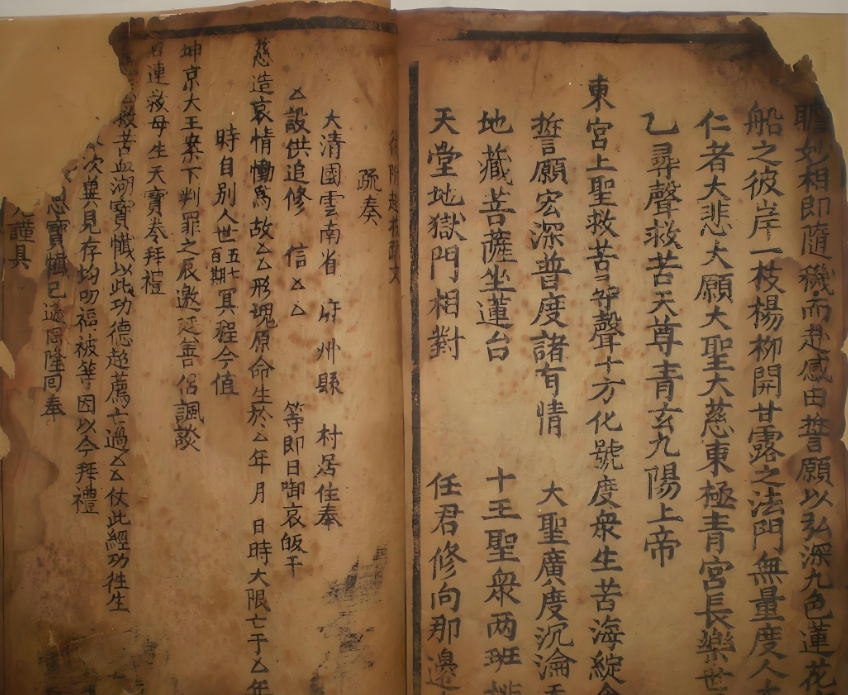 瞻妙相即隨機而赴感由誓願以弘深九色蓮花
船之彼岸一枝楊柳開甘露之法門無量度人
仁者大悲大願大聖大慈東極青宮長樂世
乙尋聲救苦天尊青玄九陽上帝
東宮上聖救苦尋聲十方化號度衆生苦海綻
誓願宏深普度諸有情 大聖廣度沉淪
地藏菩薩坐蓮台 十王聖衆两班
天堂地獄門相對 任君修向那邊
疏文
疏奏
大清國雲南省 府州縣 村居住奉
厶設供追修 信厶厶 等即日啣哀皈干
慈造哀情慟爲故厶厶形魂原命生於厶年月日時大限亡于厶年
時自別人世五七百期冥程今值
坤京大王案下判罪之辰邀延善侶諷談
連救母生天寶卷拜禮
救苦血湖寶懺以此功德超薦亡過厶厶仗此經功徃生
次兾見存均叨福被等因以今拜禮
寶懺已遂同隆回奉
謹具